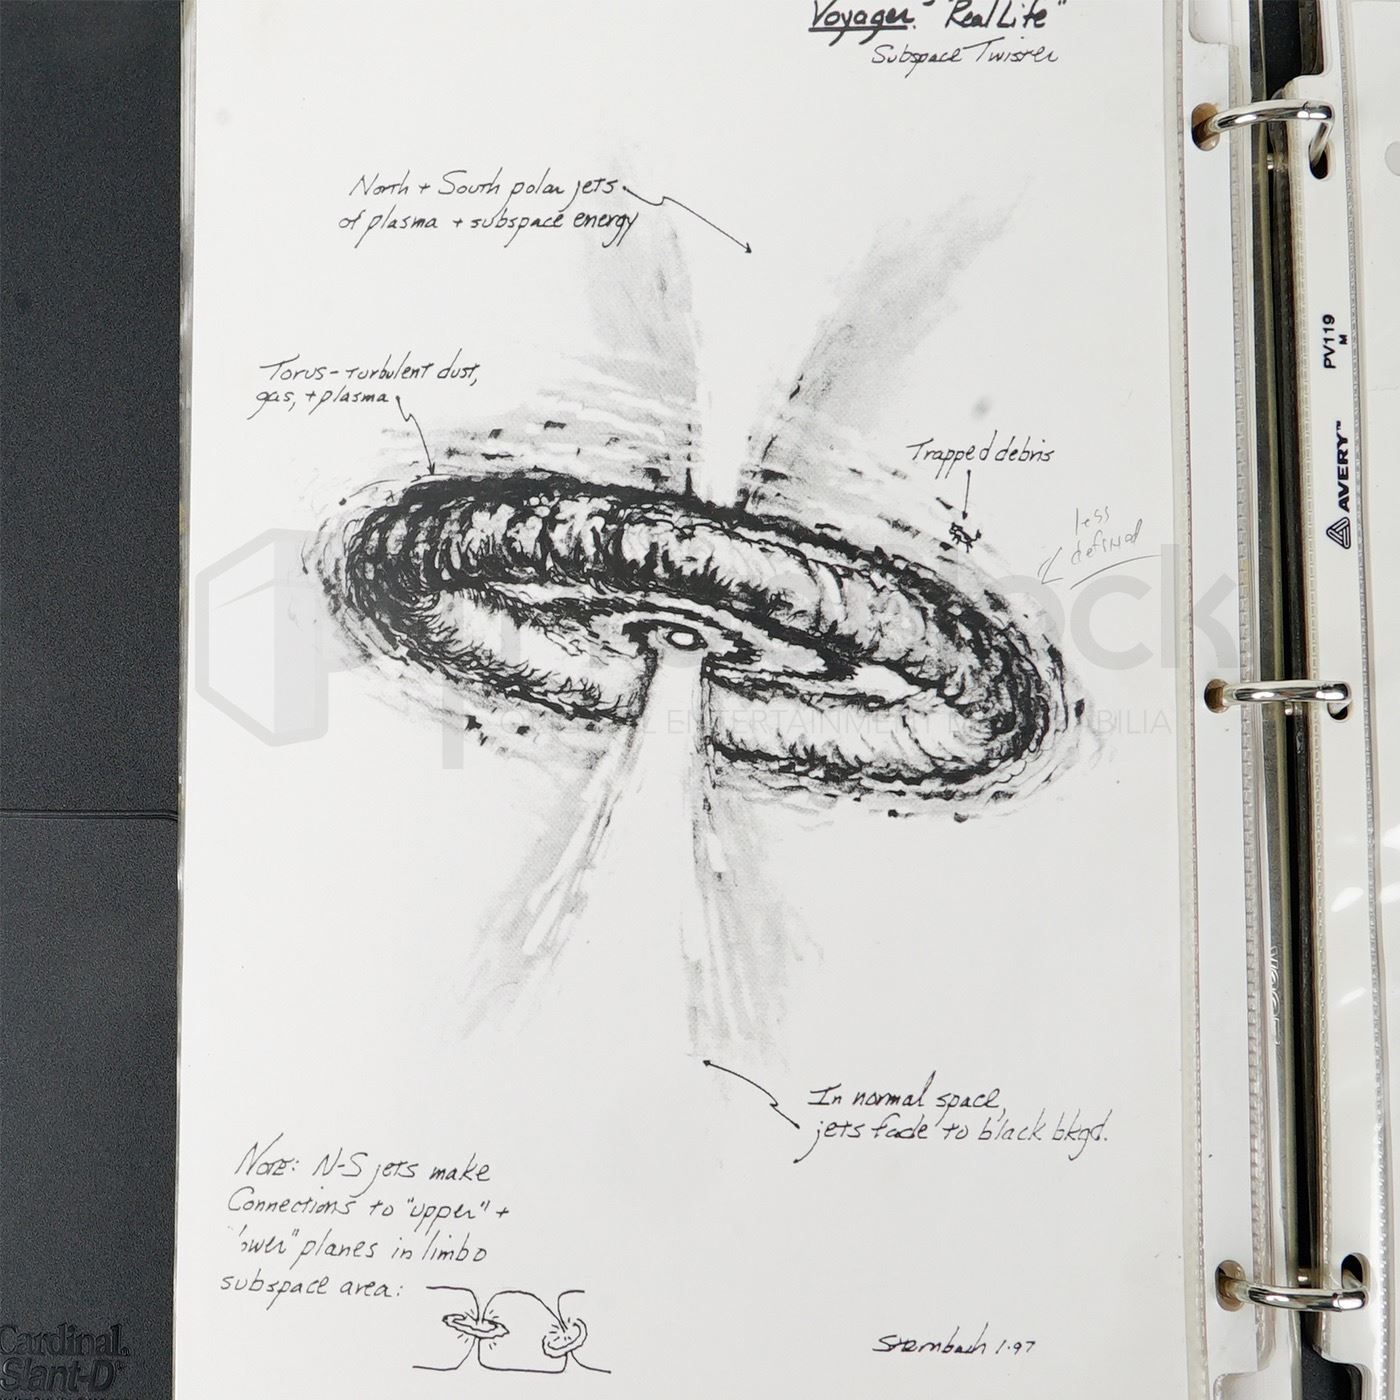 Voyager: "Real Life"
Subspace Twister
North + South polar jets
of plasma + subspace energy
Torus - turbulent dust,
gas, + plasma
Trapped debris
less
defined
In normal space,
jets fade to black bkgd.
NOTE: N-S jets make
Connections to "upper" +
"lower" planes in limbo
subspace area:
Sternbach 1.97
propstock
ENTERTAINMENT
PV119
M
AVERY™
Cardinal.
Slant-D